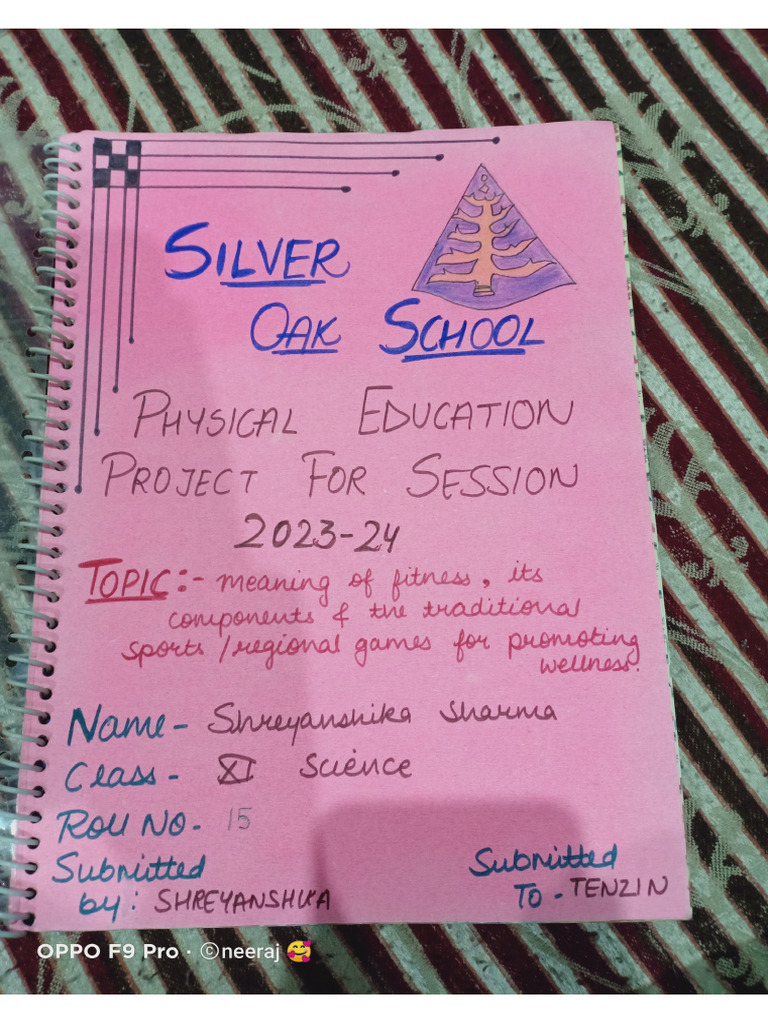 SILVER
OAK SCHOOL
PHYSICAL EDUCATION
PROJECT FOR SESSION
2023-24
TOPIC:- meaning of fitness, its
components & the traditional
sports/regional games for promoting
wellness.
Name- Shreyanshika Sharma
Class- XI Science
Roll No- 15
Submitted
by: SHREYANSHIKA
Submitted
To - TENZIN
OPPO F9 Pro · ©neeraj 🥰